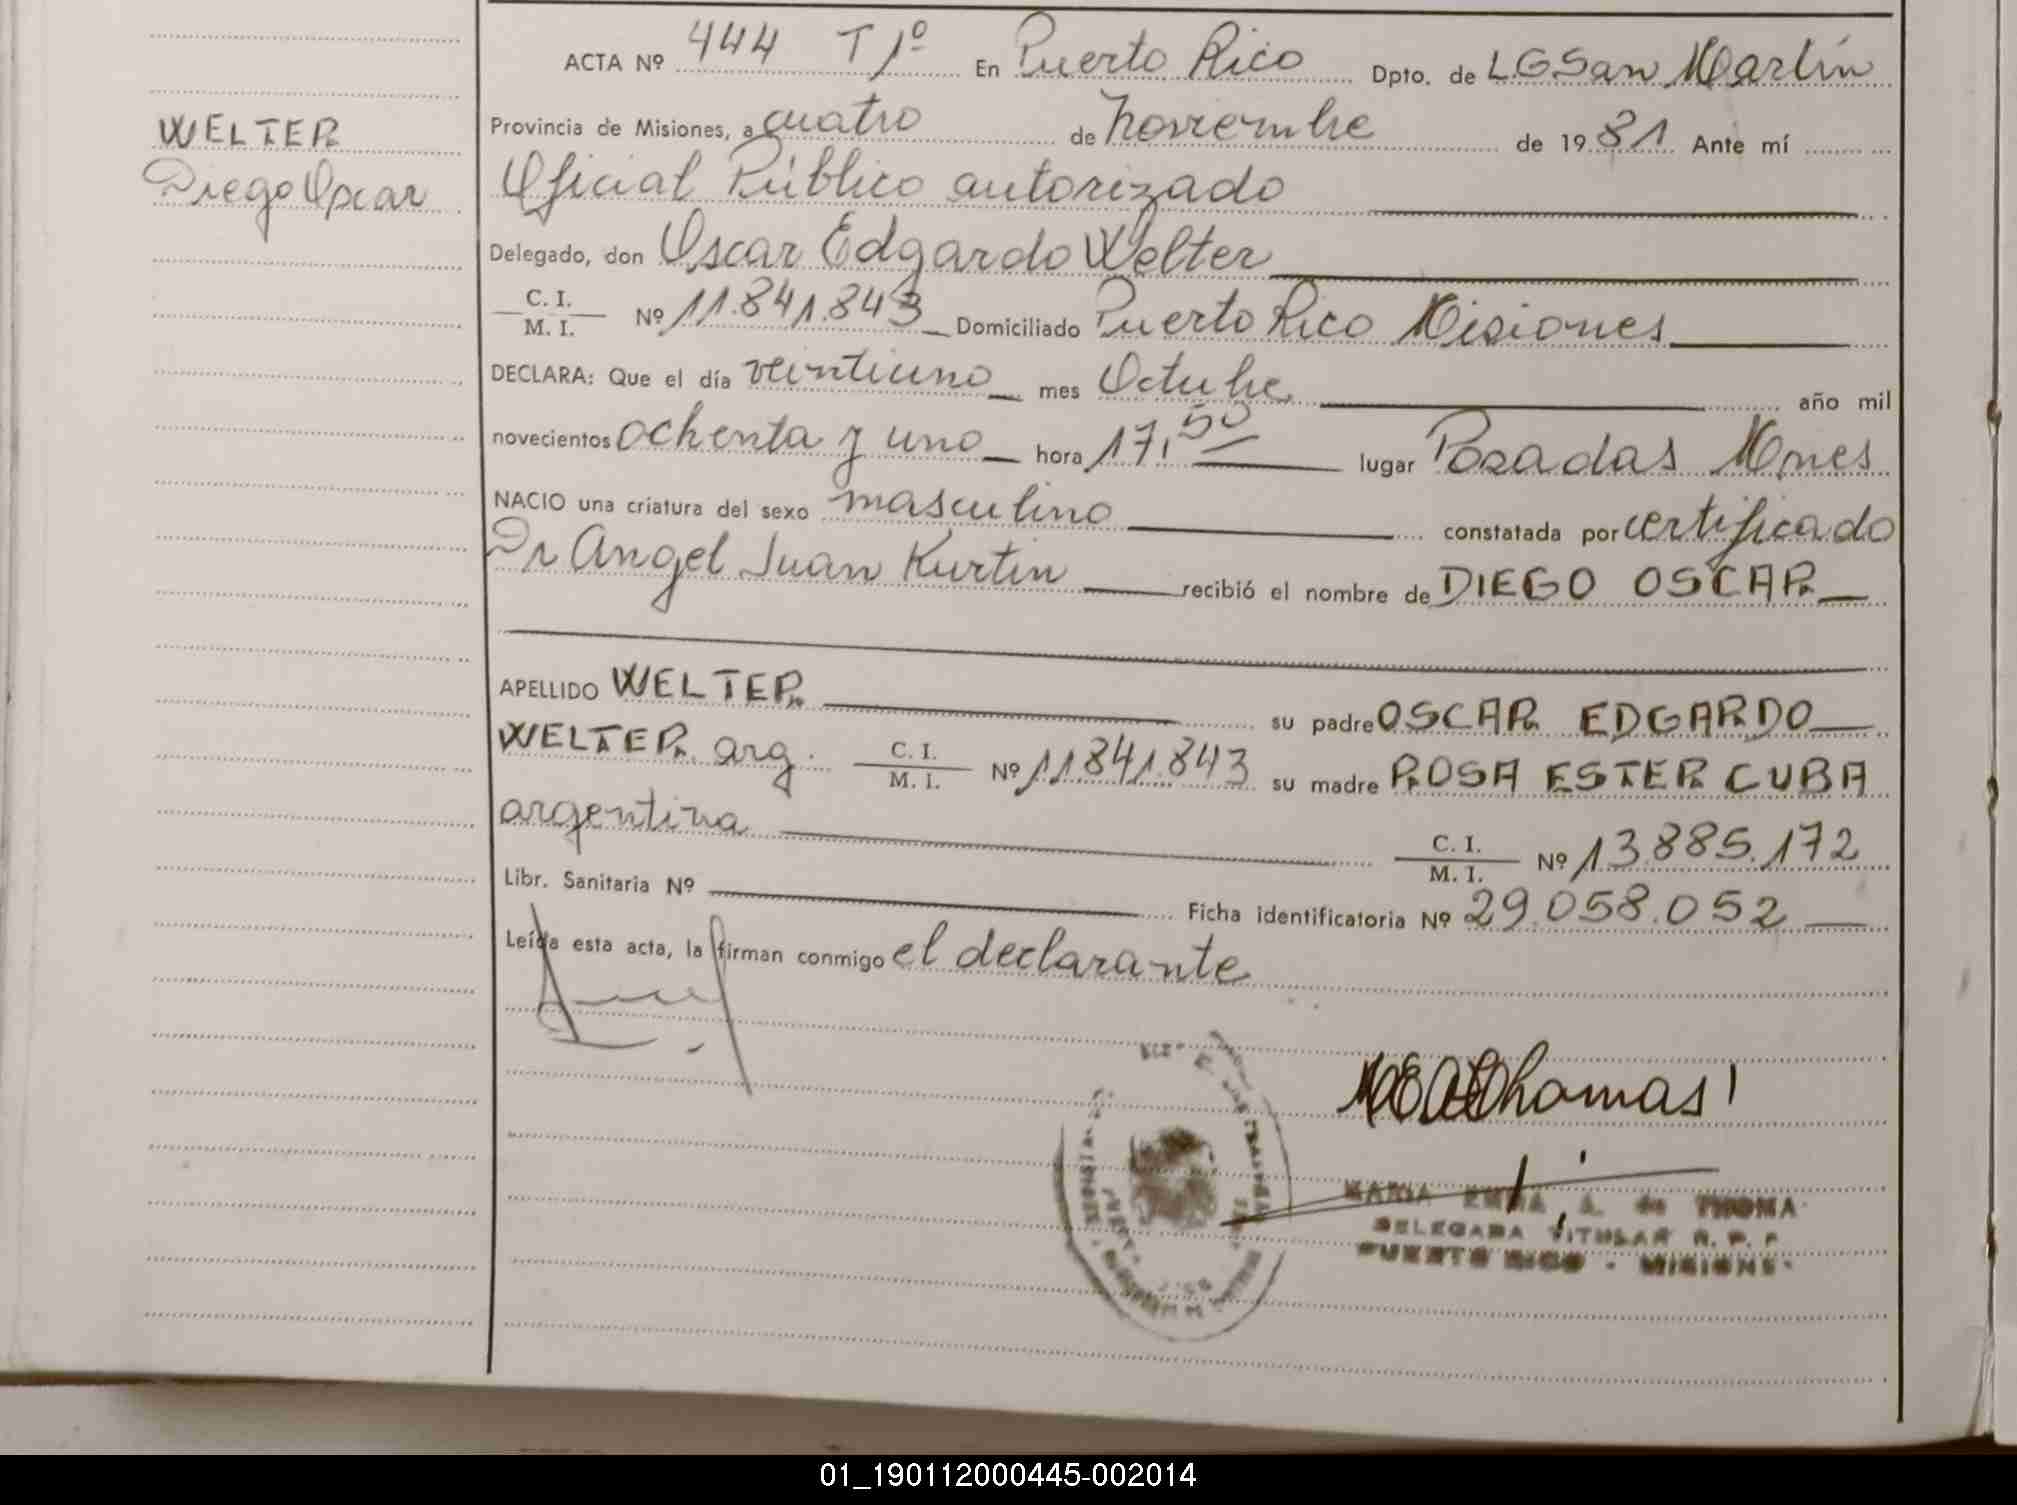 ACTA Nº 444 T 1º En Puerto Rico Dpto. de L.G.San Martín
WELTER
Diego Oscar
Provincia de Misiones, a cuatro de noviembre de 1981 Ante mí
Oficial Público autorizado
Delegado, don Oscar Edgardo Welter
C. I.
M. I. Nº 11.841.843 Domiciliado Puerto Rico Misiones
DECLARA: Que el día veintiuno mes Octubre año mil
novecientos ochenta y uno hora 17,50 lugar Posadas Mnes
NACIO una criatura del sexo masculino constatada por certificado
Dr Angel Juan Kurtin recibió el nombre de DIEGO OSCAR
APELLIDO WELTER su padre OSCAR EDGARDO
WELTER arg. C. I.
M. I. Nº 11841.843 su madre ROSA ESTER CUBA
argentina C. I.
M. I. Nº 13.885.172
Libr. Sanitaria Nº Ficha identificatoria Nº 29.058.052
Leída esta acta, la firman conmigo el declarante
Thomas
MARIA EMMA A. de THOMA
DELEGADA TITULAR R. P. P
PUERTO RICO - MISIONES
01_190112000445-002014